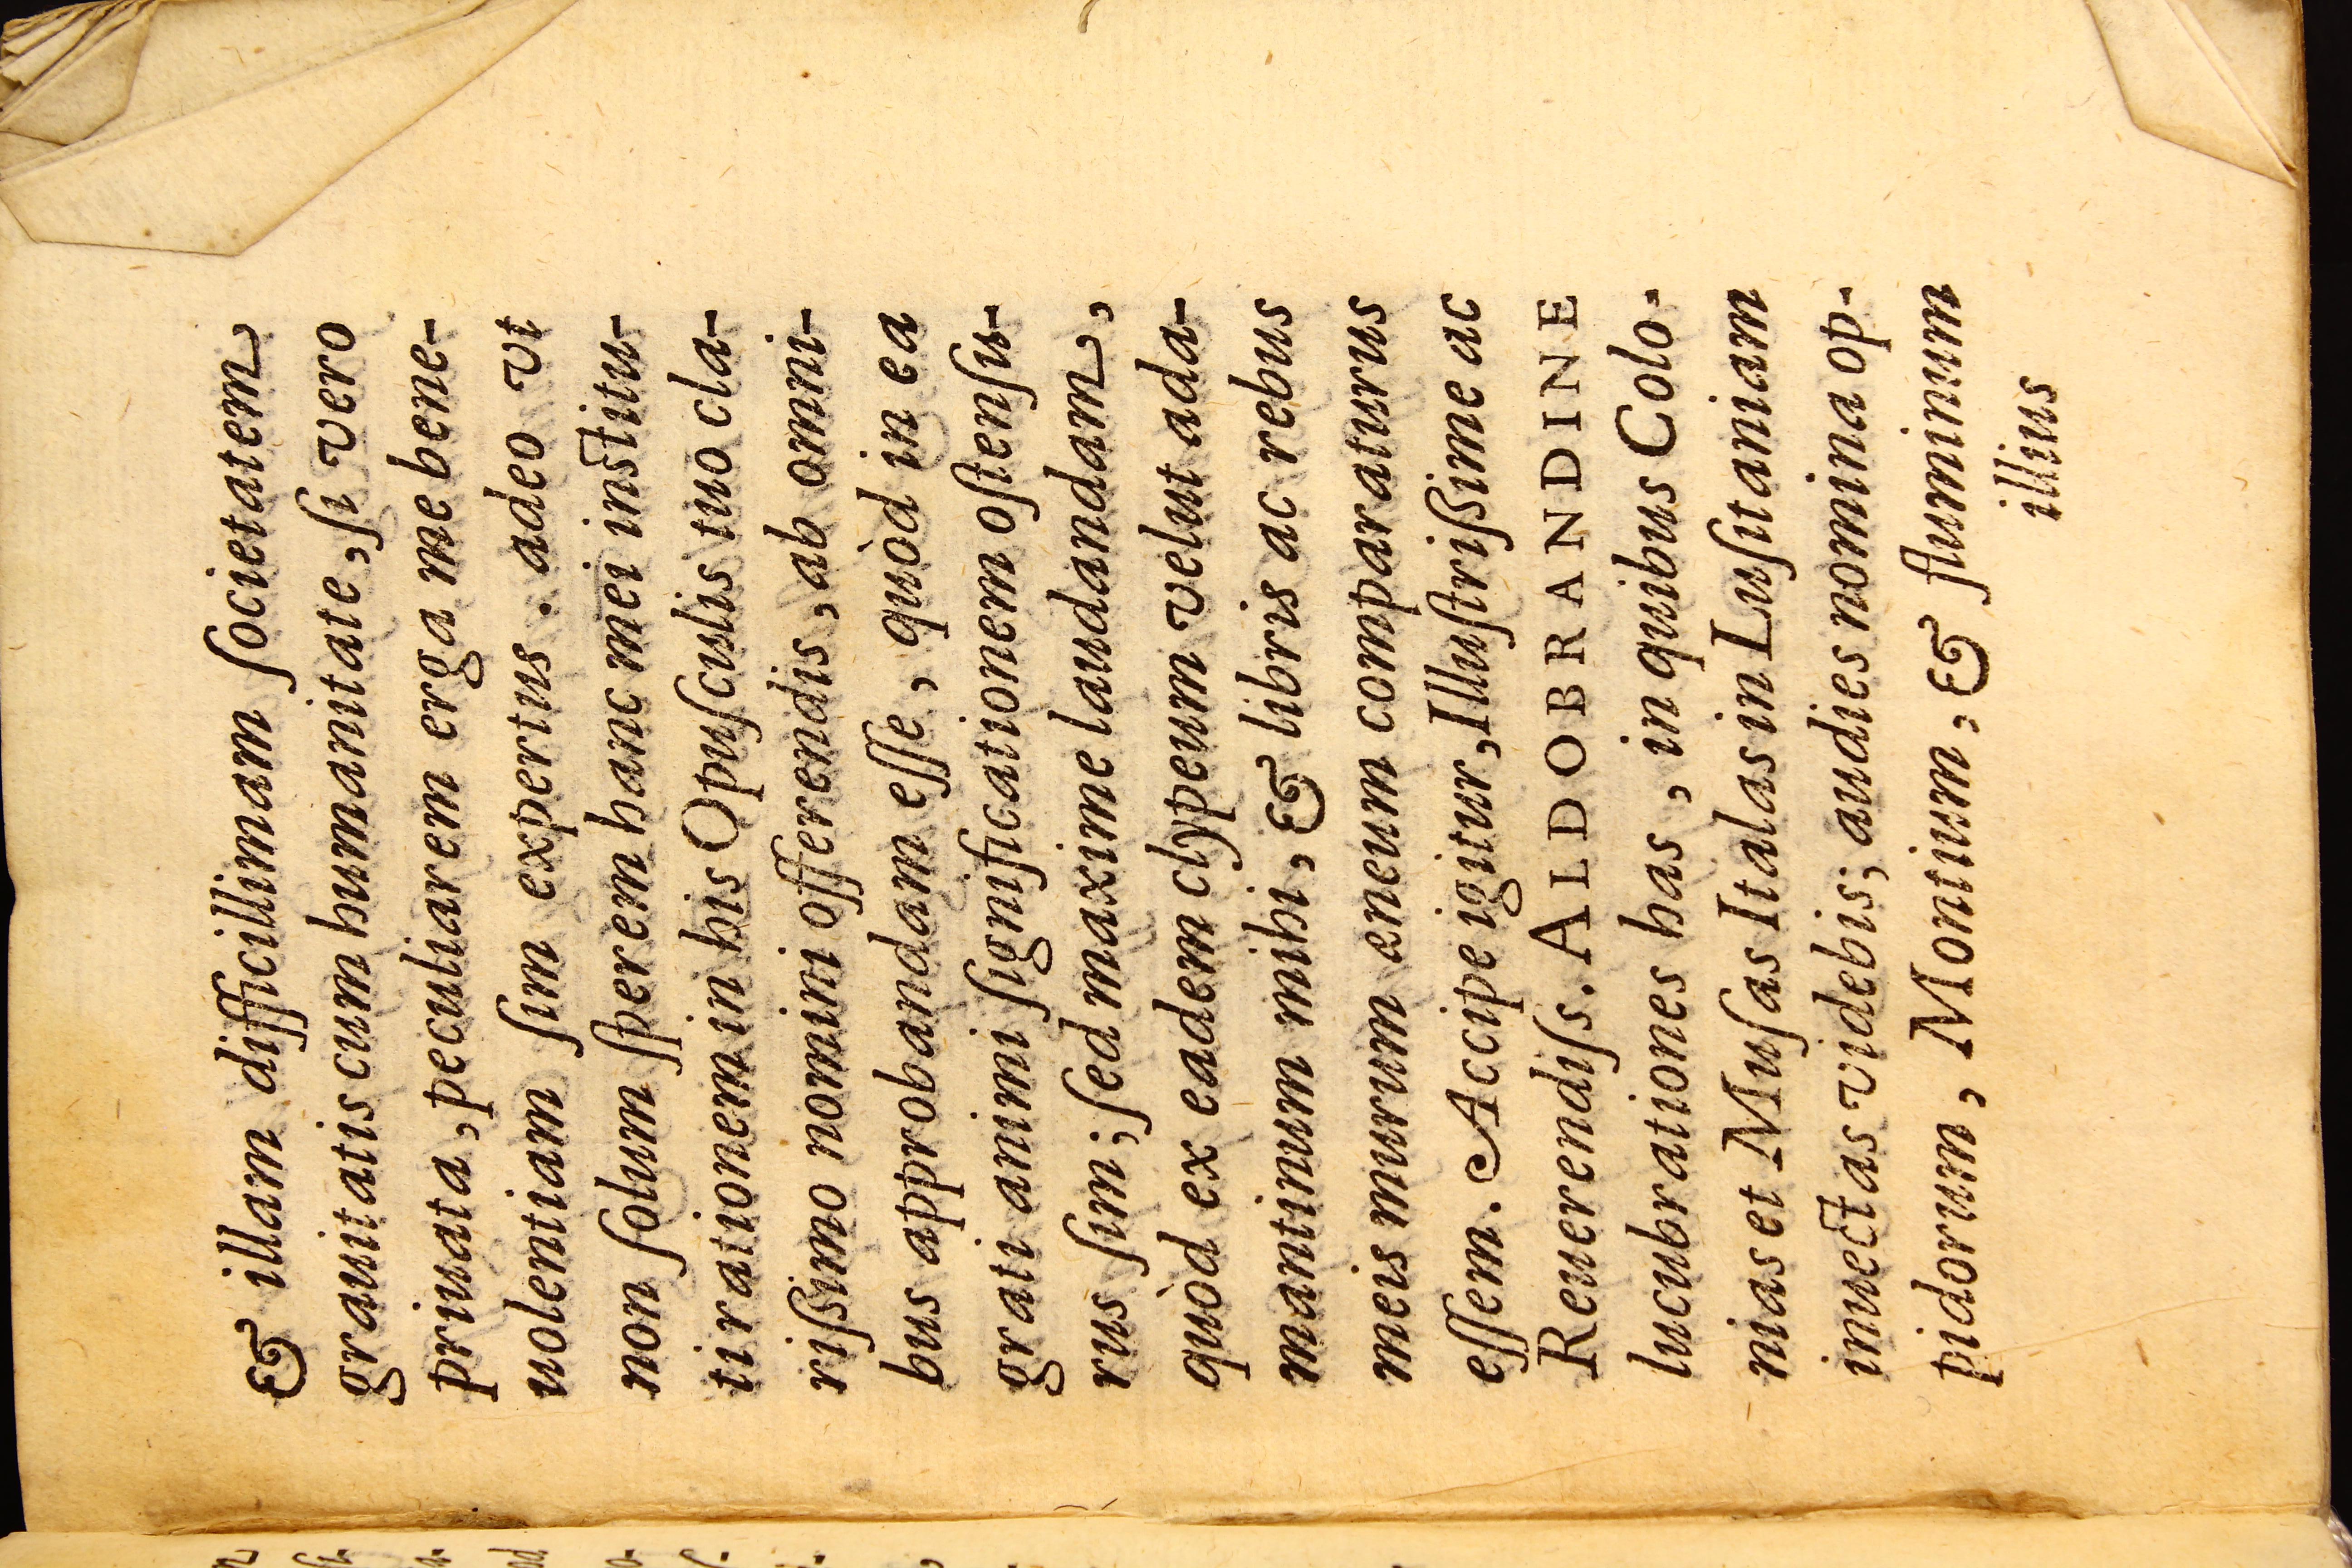 & illam difficillimam ſocietatem
grauitatis cum humanitate, ſi vero
priuata, peculiarem erga me bene-
uolentiam ſim expertus. adeo vt
non ſolum ſperem hanc mei inſtitu-
ti rationem in his Opuſculis tuo cla-
riſſimo nomini offerendis, ab omni-
bus approbandam eſſe, quòd in ea
grati animi ſignificationem oſtenſu-
rus ſim; ſed maxime laudandam,
quòd ex eadem clypeum velut ada-
mantinum mihi, & libris ac rebus
meis murum æneum comparaturus
eſſem. Accipe igitur, Illuſtriſſime ac
Reuerendiſs. ALDOBRANDINE
lucubrationes has, in quibus Colo-
nias et Muſas Italas in Luſitaniam
inuectas videbis; audies nomina op-
pidorum, Montium, & fluminum
illius